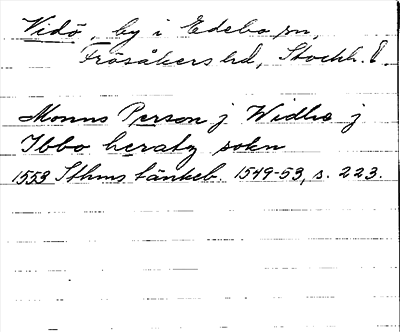 Vidö, by i Edebo sn,
Frösåkers hd, Stockh. l.
Monns Person j Widhö j
Ibbo heratz sokn
1553 Sthms tänkeb. 1549-53, s. 223.